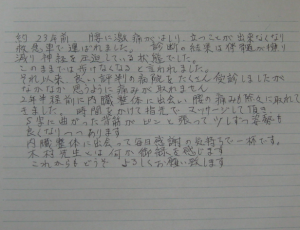 約23年前、腰に激痛がはしり、立つことが出来なくなり
救急車で運ばれました。診断の結果は脊髄が擦り
減り神経を圧迫している状態でした。
このままでは歩けなくなると言われました。
それ以来、良い評判の病院をたくさん受診しましたが
なかなか思うように痛みが取れません
2年半程前に内臓整体に出会い腰の痛みも節々に取れて
きました。時間をかけて指先で、マッサージして頂き
S字に曲がった背筋がピンと張って少しずつ姿勢も
良くなりつつあります
内臓整体に出会って毎日感謝の気持ちで一杯です。
木村先生とは何か御縁を感じます
これからもどうぞ よろしくお願い致します